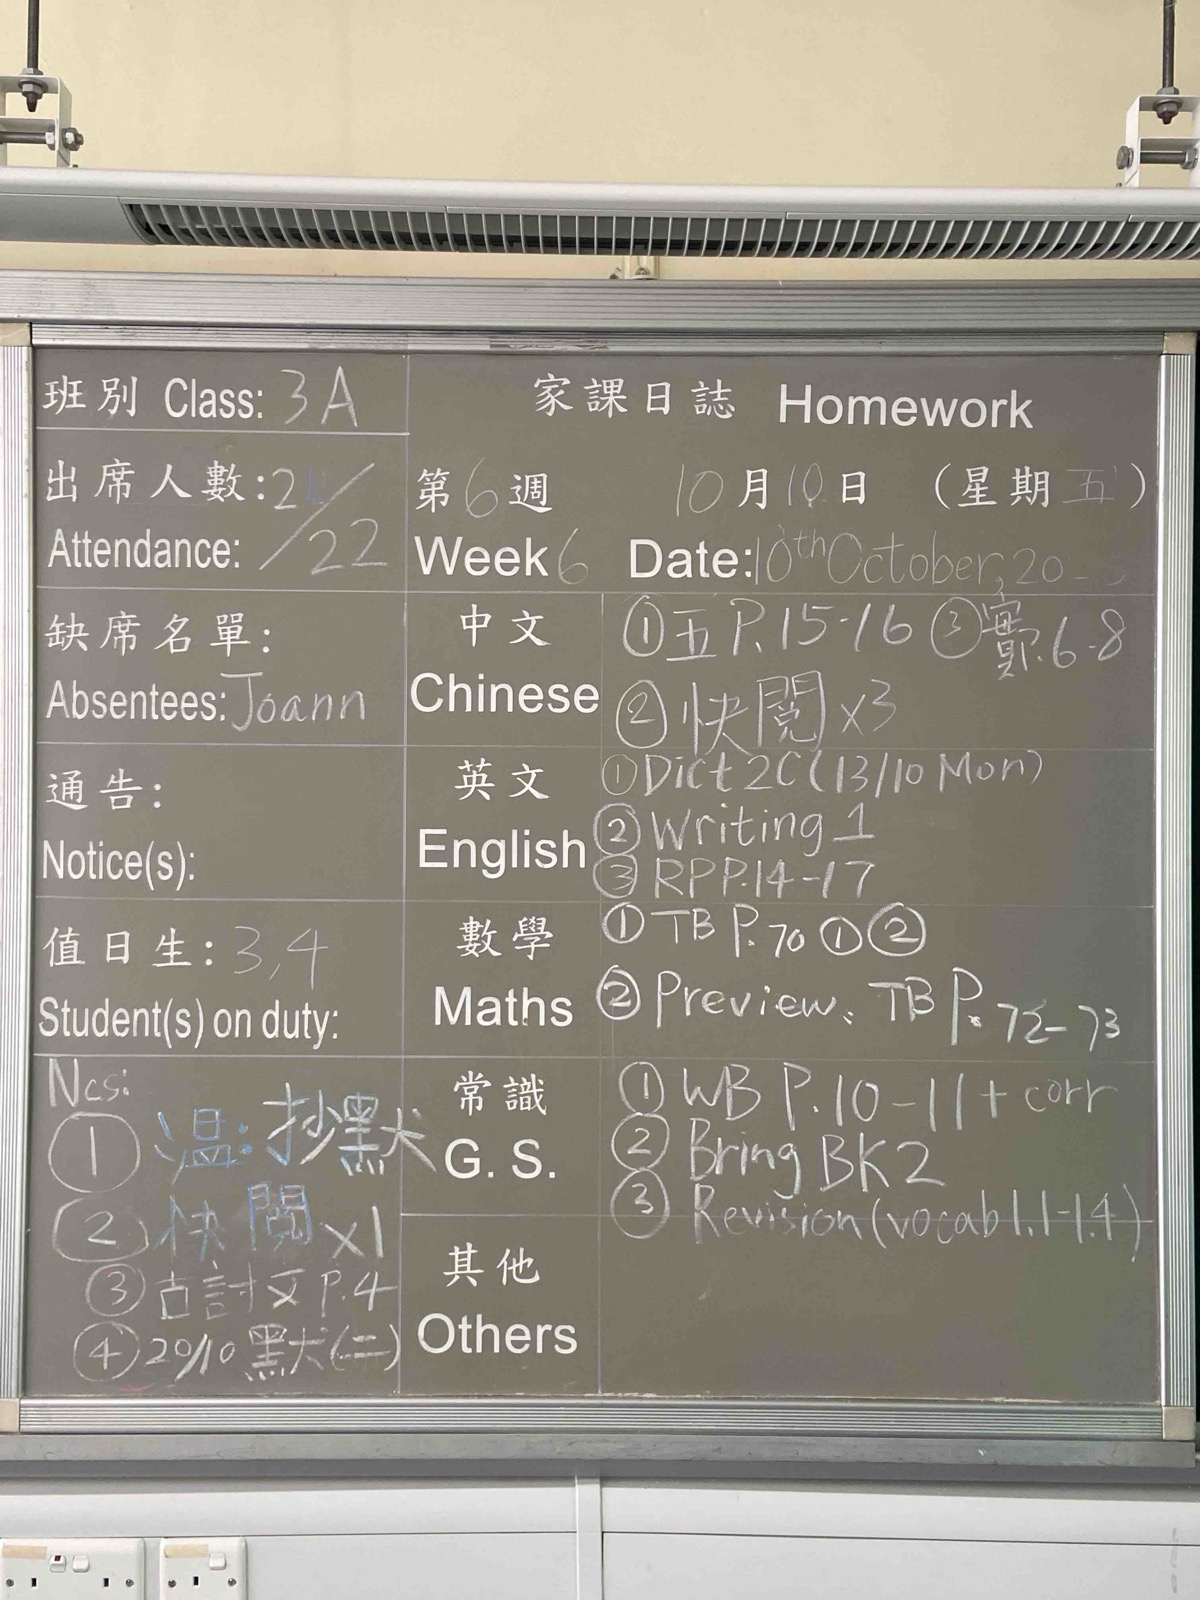 班別 Class: 3A
家課日誌 Homework
出席人數: 21/22
Attendance:
第6週 10月10日 (星期五)
Week 6 Date: 10th October, 20
缺席名單:
Absentees: Joann
通告:
Notice(s):
值日生: 3,4
Student(s) on duty:
Ncs:
① 溫: 抄默
② 快閱 x1
③ 古討文 P.4
④ 20/10 默(二)
中文
Chinese
① 五 P.15-16 ③ P.6-8
② 快閱 x3
英文
English
① Dict 2C (13/10 Mon)
② Writing 1
③ RP P.14-17
數學
Maths
① TB P.70 ① ②
② Preview: TB P.72-73
常識
G. S.
① WB P.10-11 + corr
② Bring BK2
③ Revision (vocab 1.1-1.4)
其他
Others